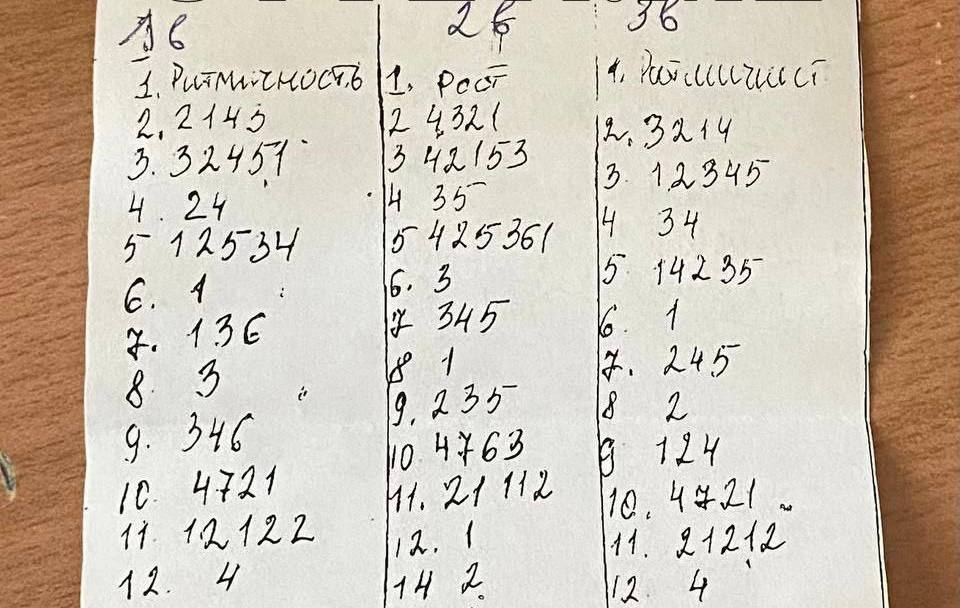 1в
1. Ритмичность
2. 2143
3. 32451
4. 24
5 12534
6. 1
7. 136
8. 3
9. 346
10. 4721
11. 12122
12. 4
2в
1. Рост
2 4321
3 42153
4 35
5 425361
6. 3
7 345
8 1
9. 235
10 4763
11. 21112
12. 1
14 2.
3в
1. Ритмичност
2. 3214
3. 12345
4 34
5 14235
6. 1
7. 245
8 2
9 124
10. 4721
11. 21212
12 4